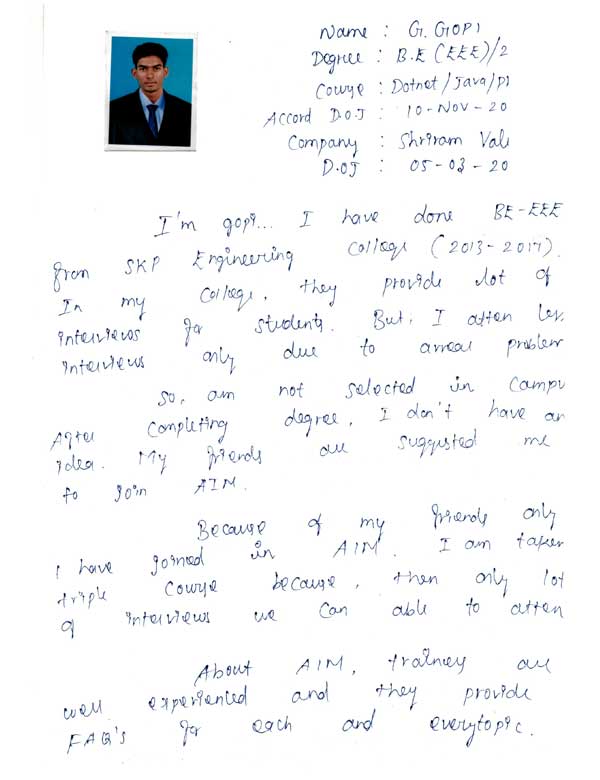 Name : G. GOPI
Degree : B.E (EEE)/2
Course : Dotnet/Java/
Accord D.O.J : 10-NOV-20
Company : Shriram
D.OJ : 05-03-20
I'm gopi... I have done BE-EEE
from SKP Engineering College (2013-2017).
In my College, they provide lot of
interviews for students. But, I atten
interviews only due to arrear problem
So, am not selected in Campu
After completing degree, I don't have an
idea. My friends are suggested me
to join AIM.
Because of my friends only
I have joined in AIM. I am taken
triple Course because, then only lot
of interviews we can able to atten
About AIM, are
well experienced and they provide
FAQ's for each and everytopic.